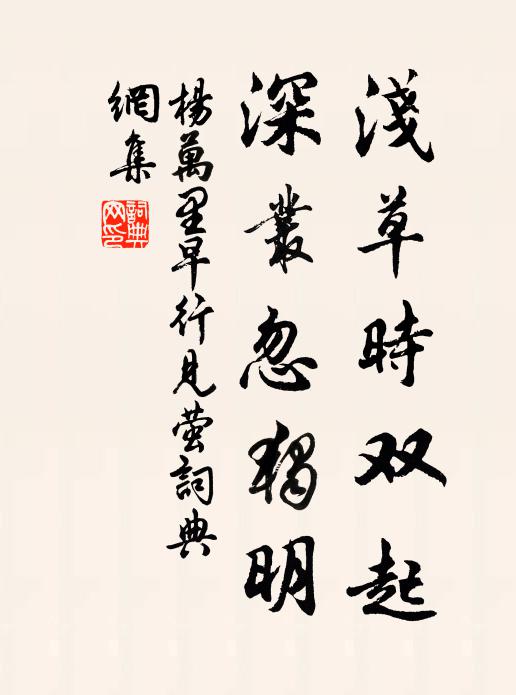 淺草時双起
深叢忽獨明
楊萬里早行見螢詞典
網集
詞典
网印